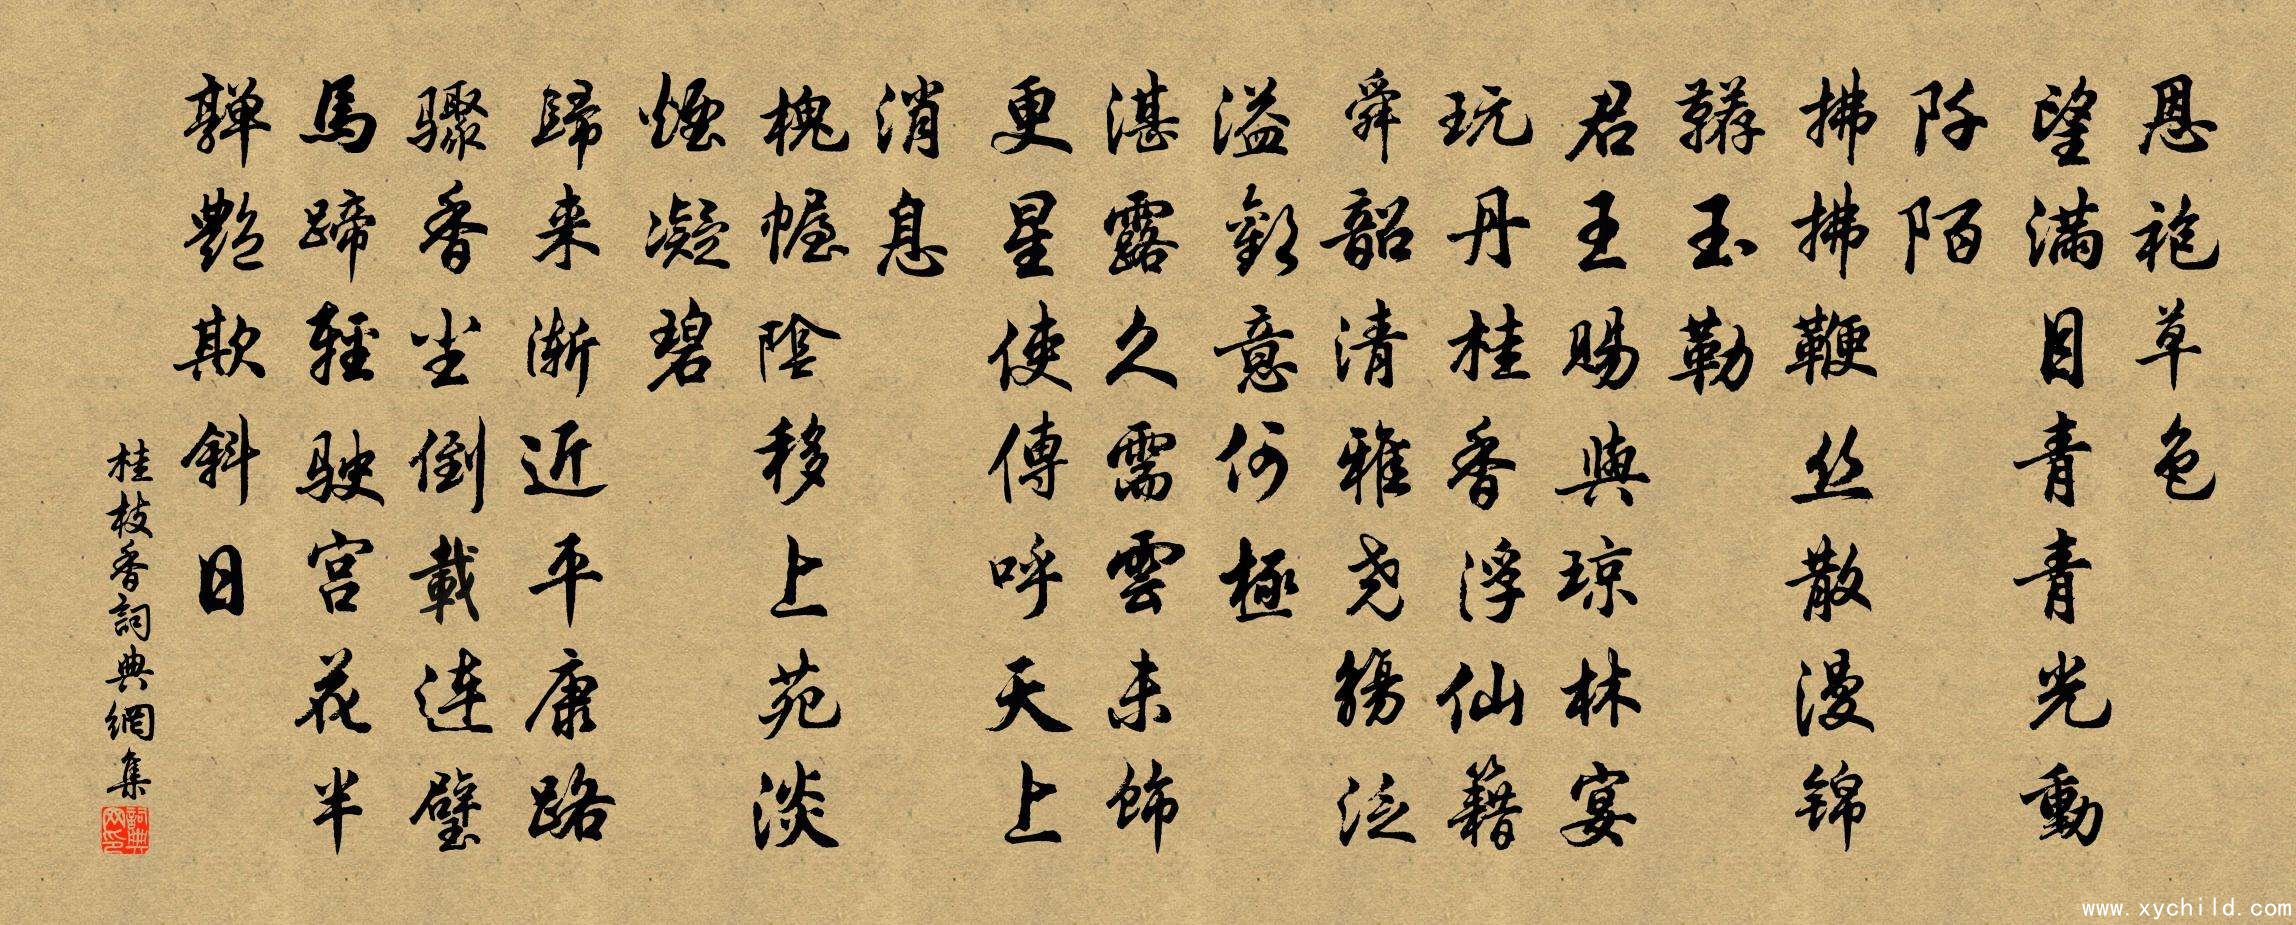 恩袍草色
望滿目青青光動
阡陌
拂拂鞭丝散漫锦
韉玉勒
君王賜與琼林宴
玩丹桂香浮仙籍
舜韶清雅尧觴泛
溢歡意何極
湛露久需雲未飾
更星使傳呼天上
消息
槐幄陰移上苑淡
煙凝碧
歸来漸近平康路
驟香尘倒載連璧
馬蹄輕駛宮花半
嚲艷欺斜日
桂枝香詞典網集
詞典网印
www.xychild.com